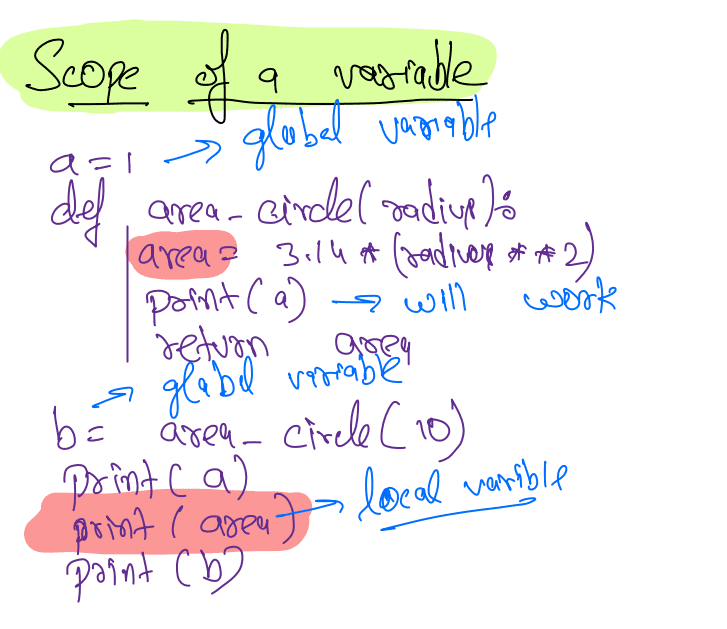 Scope of a variable
a = 1 → global variable
def area_circle(radius):
area = 3.14 * (radius ** 2)
print(a) → will work
return area
→ glabal variable
b = area_circle(10)
print(a)
print(area) → local varible
print(b)